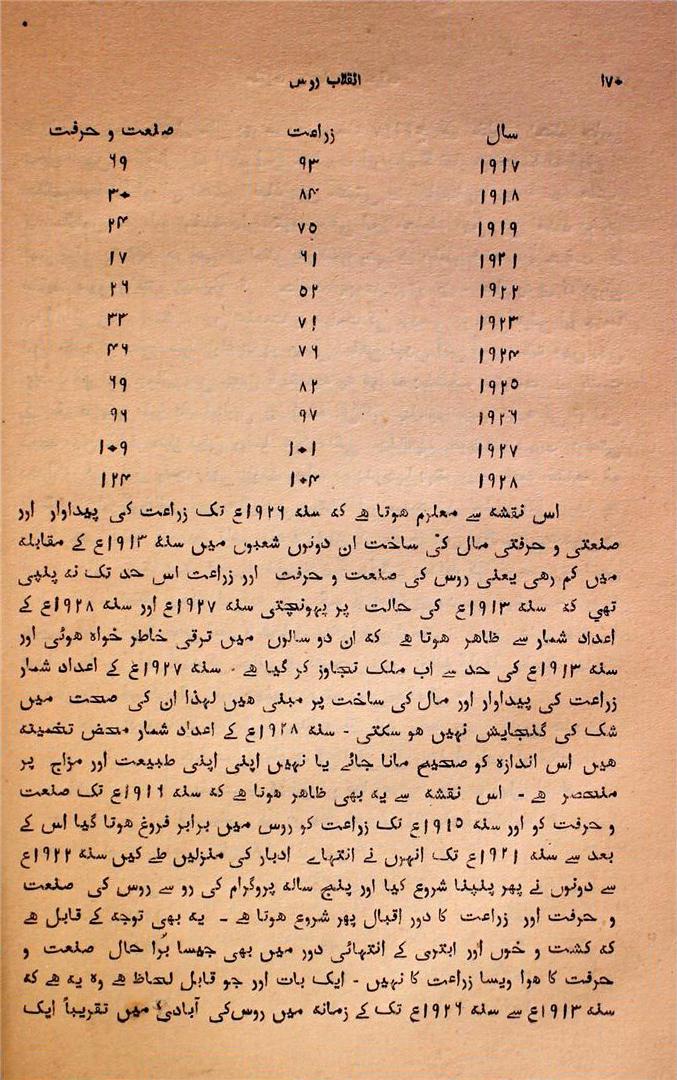 ۱۷۰ انقلاب روس
سال زراعت صنعت و حرفت
۱۹۱۷ ۹۳ ۶۹
۱۹۱۸ ۸۴ ۳۰
۱۹۱۹ ۷۵ ۲۴
۱۹۲۱ ۶۱ ۱۷
۱۹۲۲ ۵۲ ۲۶
۱۹۲۳ ۷۱ ۳۳
۱۹۲۴ ۷۶ ۴۶
۱۹۲۵ ۸۲ ۶۹
۱۹۲۶ ۹۷ ۹۶
۱۹۲۷ ۱۰۱ ۱۰۹
۱۹۲۸ ۱۰۴ ۱۲۴
اس نقشہ سے معلوم ہوتا ہے کہ سنہ ۱۹۲۶ع تک زراعت کی پیداوار اور
صنعتی و حرفتی مال کی ساخت ان دونوں شعبوں میں سنہ ۱۹۱۳ع کے مقابلہ
میں کم رہی یعنی روس کی صنعت و حرفت اور زراعت اس حد تک نہ پنپی
تھی کہ سنہ ۱۹۱۳ع کی حالت پر پہونچتی سنہ ۱۹۲۷ع اور سنہ ۱۹۲۸ع کے
اعداد شمار سے ظاہر ہوتا ہے کہ ان دو سالوں میں ترقی خاطر خواہ ہوئی اور
سنہ ۱۹۱۳ع کی حد سے اب ملک تجاوز کر گیا ہے ۔ سنہ ۱۹۲۷ع کے اعداد شمار
زراعت کی پیداوار اور مال کی ساخت پر مبنی ہیں لہذا ان کی صحت میں
شک کی گنجایش نہیں ہو سکتی ۔ سنہ ۱۹۲۸ع کے اعداد شمار محض تخمینہ
ہیں اس اندازہ کو صحیح مانا جائے یا نہیں اپنی اپنی طبیعت اور مزاج پر
منحصر ہے ۔ اس نقشہ سے یہ بھی ظاہر ہوتا ہے کہ سنہ ۱۹۱۶ع تک صنعت
و حرفت کو اور سنہ ۱۹۱۵ع تک زراعت کو روس میں برابر فروغ ہوتا گیا اس کے
بعد سے سنہ ۱۹۲۱ع تک انہوں نے انتہاے ادبار کی منزلیں طے کیں سنہ ۱۹۲۲ع
سے دونوں نے پھر پنپنا شروع کیا اور پنج سالہ پروگرام کی رو سے روس کی صنعت
و حرفت اور زراعت کا دور اقبال پھر شروع ہوتا ہے ۔ یہ بھی توجہ کے قابل ہے
کہ کشت و خوں اور ابتری کے انتہائی دور میں بھی جیسا برا حال صنعت و
حرفت کا ہوا ویسا زراعت کا نہیں ۔ ایک بات اور جو قابل لحاظ ہے وہ یہ ہے کہ
سنہ ۱۹۱۳ع سے سنہ ۱۹۲۶ع تک کے زمانہ میں روس کی آبادی میں تقریباً ایک